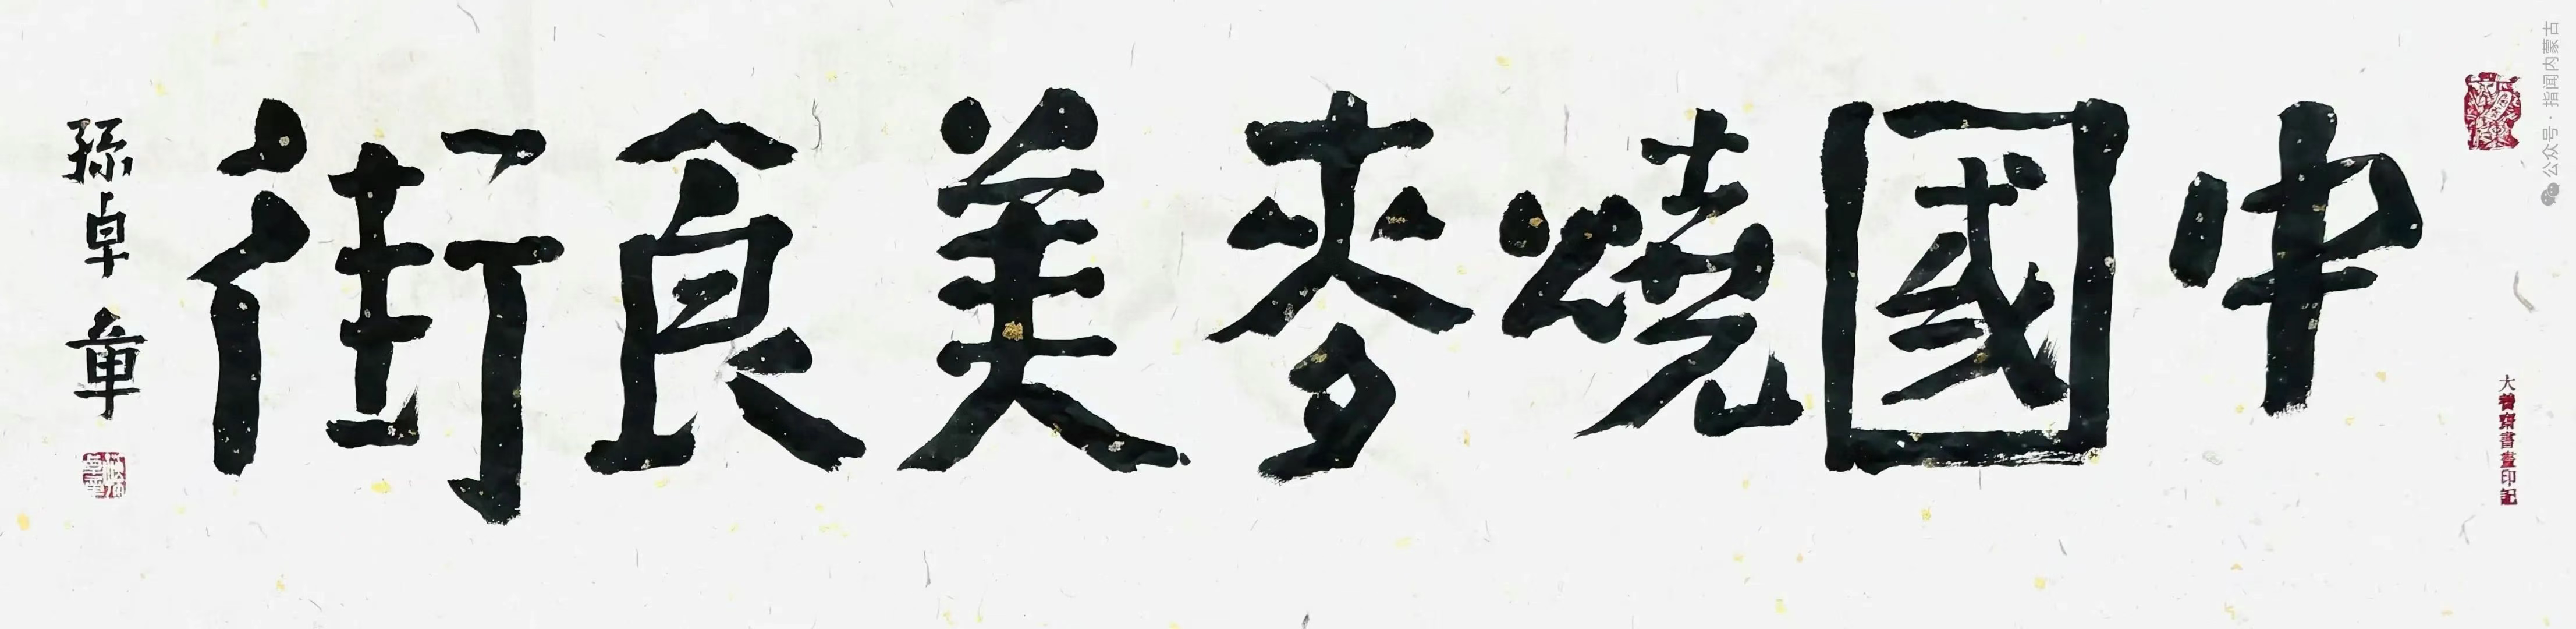 中國燒麥美食街
孫卓章
大養齋書畫印記
公众号·指闻内蒙古